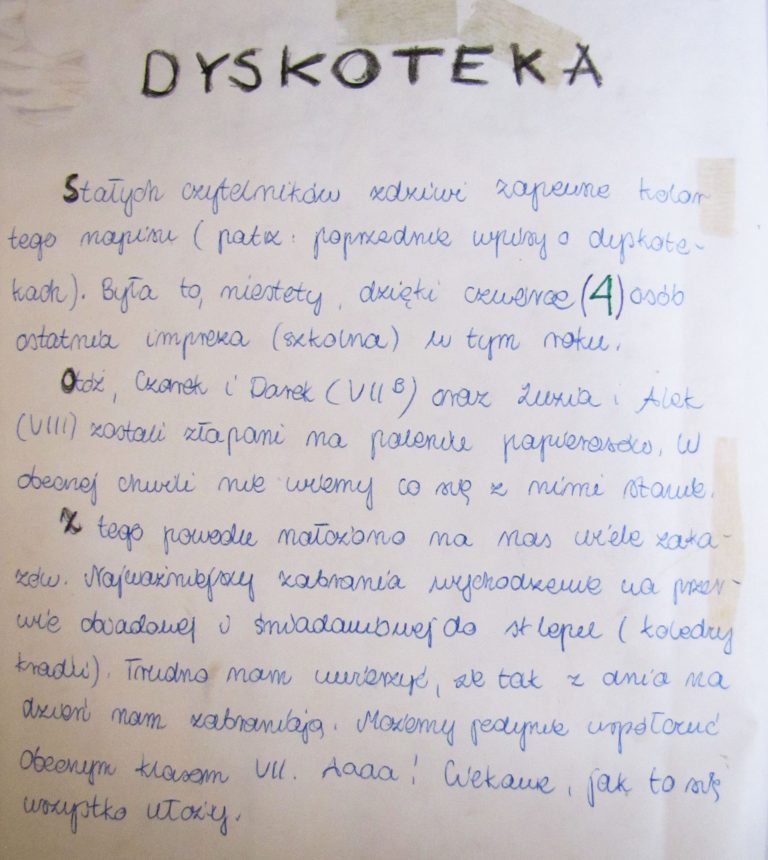 DYSKOTEKA
Stałych czytelników zdziwi zapewne kolor
tego napisu (patrz: poprzednie wpisy o dyskote-
kach). Była to, niestety, dzięki czwórce (4) osób
ostatnia impreza (szkolna) w tym roku.
Otóż, Czarek i Darek (VII B) oraz Luzia i Alek
(VIII) zostali złapani na paleniu papierosów. W
obecnej chwili nie wiemy co się z nimi stanie.
Z tego powodu nałożono na nas wiele zaka-
zów. Najważniejszy zabrania wychodzenie na przer-
wie obiadowej i śniadaniowej do sklepu (kolędzy
kradli). Trudno nam uwierzyć, że tak z dnia na
dzień nam zabraniają. Możemy jedynie współczuć
obecnym klasom VII. Aaaa! Ciekawe, jak to się
wszystko ułoży.